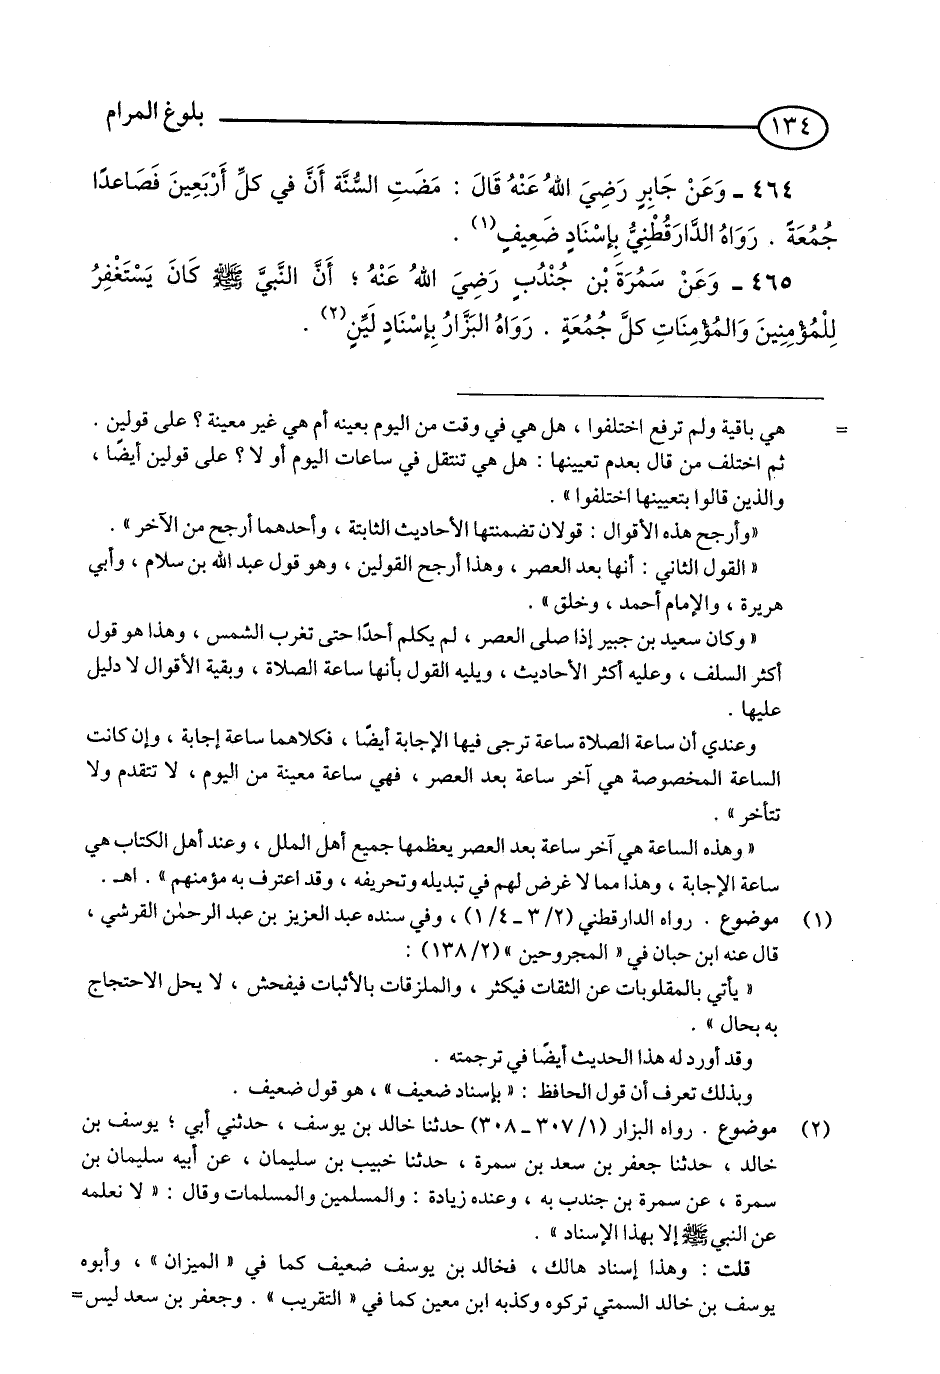 ١٣٤ بلوغ المرام
٤٦٤ ـ وَعَنْ جَابِرٍ رَضِيَ اللهُ عَنْهُ قَالَ : مَضَتِ السُّنَّة أَنَّ في كلِّ أَرْبَعِينَ فَصَاعدًا
جُمُعَةً . رَوَاهُ الدَّارَقُطْنِيُّ بِإسْنَادٍ ضَعِيفٍ(١) .
٤٦٥ ـ وَعَنْ سَمُرَةَ بْن جُنْدُبٍ رَضِيَ اللهُ عَنْهُ ؛ أَنَّ النَّبيَّ ﷺ كَانَ يَسْتَغْفِرُ
لِلْمُؤْمِنِينَ وَالمُؤْمِنَاتِ كلَّ جُمُعَةٍ . رَوَاهُ البَزَّارُ بِإِسْنَاد لَيِّنٍ(٢) .
= هي باقية ولم ترفع اختلفوا ، هل هي في وقت من اليوم بعينه أم هي غير معينة ؟ على قولين .
ثم اختلف من قال بعدم تعيينها : هل هي تنتقل في ساعات اليوم أو لا ؟ على قولين أيضًا ،
والذين قالوا بتعيينها اختلفوا » .
«وأرجح هذه الأقوال : قولان تضمنتها الأحاديث الثابتة ، وأحدهما أرجح من الآخر » .
« القول الثاني : أنها بعد العصر ، وهذا أرجح القولين ، وهو قول عبد الله بن سلام ، وأبي
هريرة ، والإمام أحمد ، وخلق » .
« وكان سعيد بن جبير إذا صلى العصر ، لم يكلم أحدًا حتى تغرب الشمس ، وهذا هو قول
أكثر السلف ، وعليه أكثر الأحاديث ، ويليه القول بأنها ساعة الصلاة ، وبقية الأقوال لا دليل
عليها .
وعندي أن ساعة الصلاة ساعة ترجى فيها الإجابة أيضًا ، فكلاهما ساعة إجابة ، وإن كانت
الساعة المخصوصة هي آخر ساعة بعد العصر ، فهي ساعة معينة من اليوم ، لا تتقدم ولا
تتأخر » .
« وهذه الساعة هي آخر ساعة بعد العصر يعظمها جميع أهل الملل ، وعند أهل الكتاب هي
ساعة الإجابة ، وهذا مما لا غرض لهم في تبديله وتحريفه ، وقد اعترف به مؤمنهم » . اهـ .
(١) موضوع . رواه الدارقطني (٢/ ٣ ـ ٤/ ١) ، وفي سنده عبد العزيز بن عبد الرحمٰن القرشي ،
قال عنه ابن حبان في « المجروحين »(٢/ ١٣٨) :
« يأتي بالمقلوبات عن الثقات فيكثر ، والملزقات بالأثبات فيفحش ، لا يحل الاحتجاج
به بحال » .
وقد أورد له هذا الحديث أيضًا في ترجمته .
وبذلك تعرف أن قول الحافظ : « بإسناد ضعيف » ، هو قول ضعيف .
(٢) موضوع . رواه البزار (١/ ٣٠٧ ـ ٣٠٨) حدثنا خالد بن يوسف ، حدثني أبي ؛ يوسف بن
خالد ، حدثنا جعفر بن سعد بن سمرة ، حدثنا خبيب بن سليمان ، عن أبيه سليمان بن
سمرة ، عن سمرة بن جندب به ، وعنده زيادة : والمسلمين والمسلمات وقال : « لا نعلمه
عن النبي ﷺ إلا بهذا الإسناد » .
قلت : وهذا إسناد هالك ، فخالد بن يوسف ضعيف كما في « الميزان » ، وأبوه
يوسف بن خالد السمتي تركوه وكذبه ابن معين كما في « التقريب » . وجعفر بن سعد ليس=